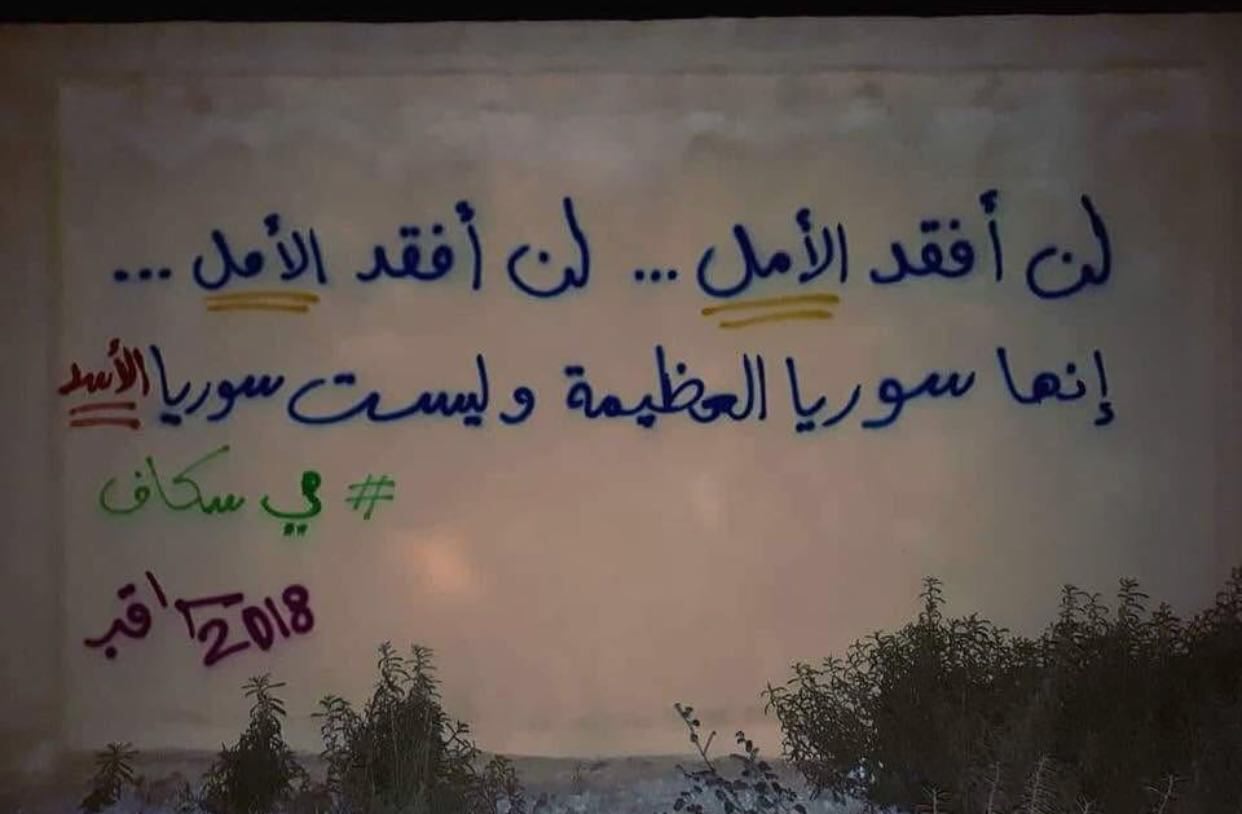 لن أفقد الأمل ... لن أفقد الأمل ...
إنها سوريا العظيمة وليست سوريا الأسد
# مي سكاف
2018